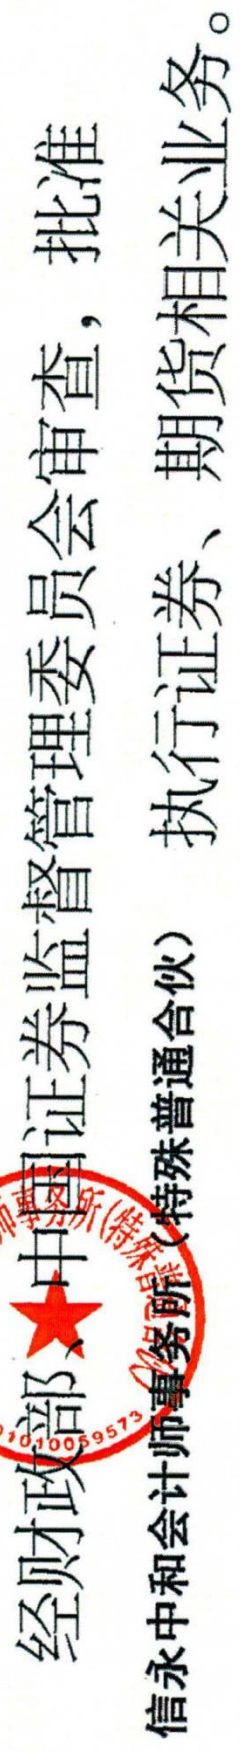 经财政部、中国证券监督管理委员会审查，批准
信永中和会计师事务所（特殊普通合伙） 执行证券、期货相关业务。
师事务所(特殊普通合伙
01010059573